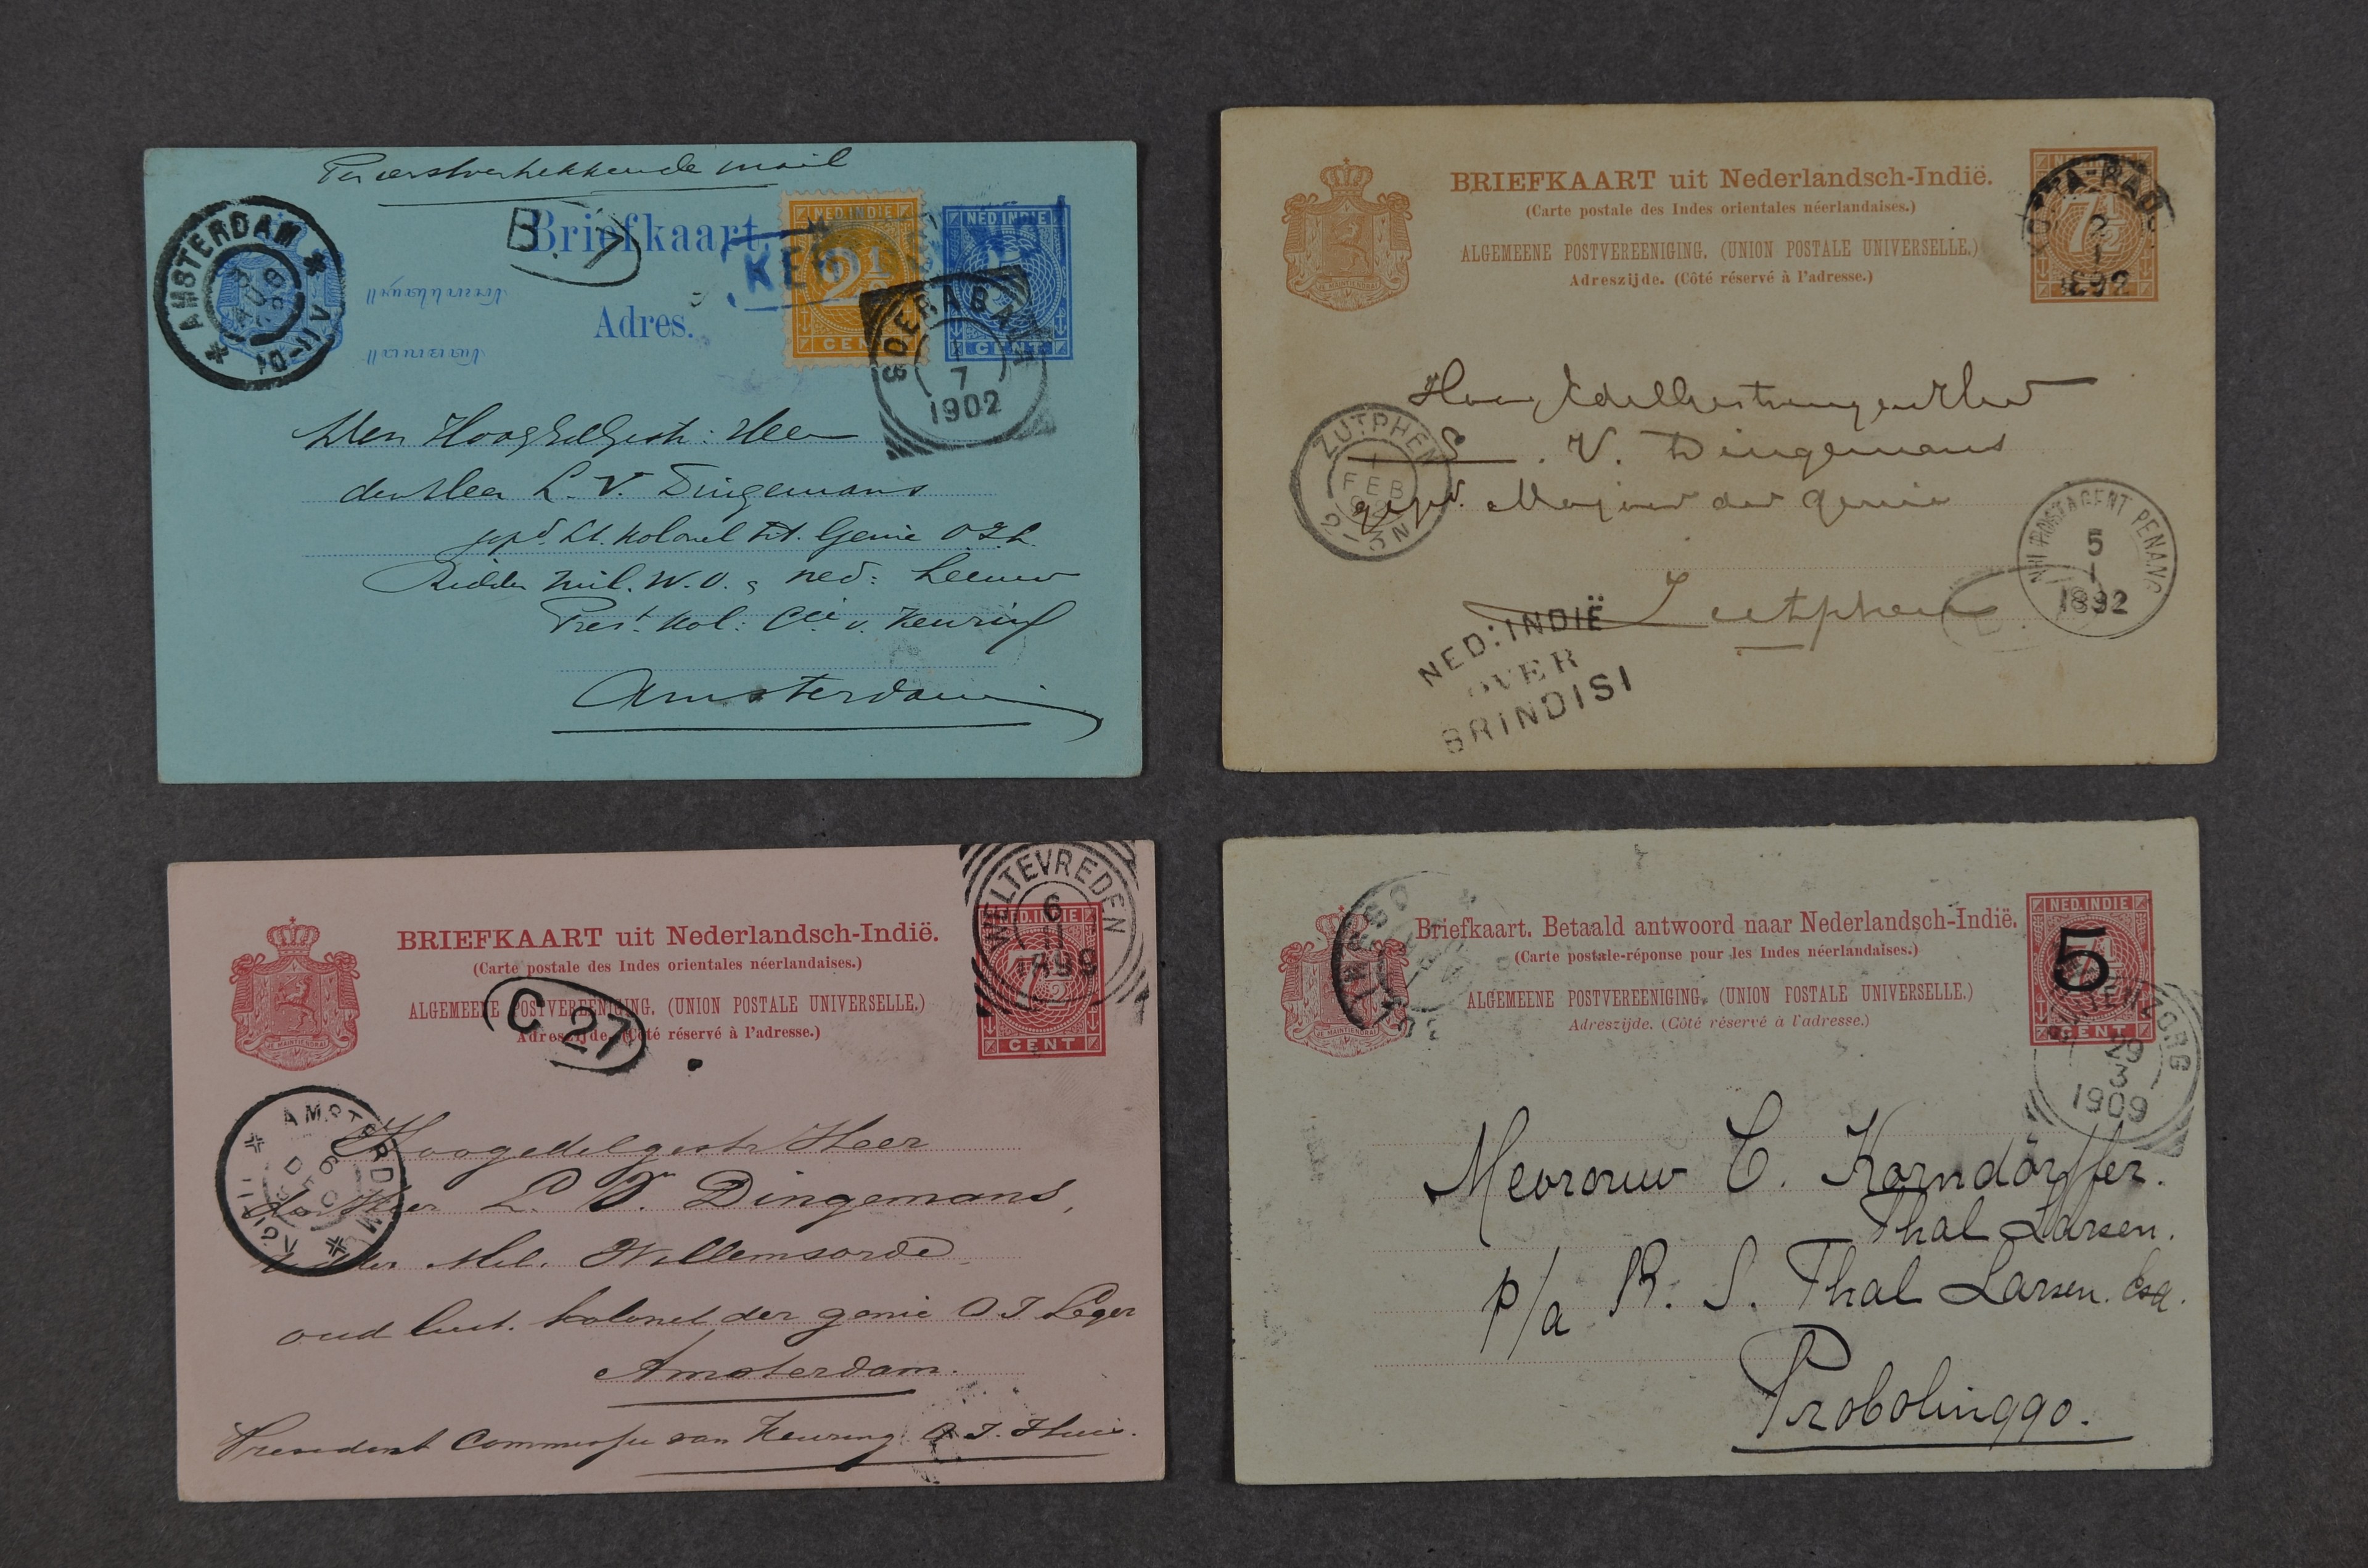 Per eerstvertrekkende mail
B. 7
Briefkaart.
Adres.
AMSTERDAM
3 AUG
10-11 V
KEN
NED. INDIE
2½
CENT
NED. INDIE
CENT
SOERABAJA
7
1902
Den HoogEdGestr: Heer
den Heer L. V. Dingemans
gepd Lt. Kolonel tit. Genie O.I.L.
Ridder Mil. W.O. & Ned: Leeuw
Prest. Kol: Cie v. Keuring
Amsterdam
BRIEFKAART uit Nederlandsch-Indië.
(Carte postale des Indes orientales néerlandaises.)
ALGEMEENE POSTVEREENIGING. (UNION POSTALE UNIVERSELLE.)
Adreszijde. (Côté réservé à l'adresse.)
JE MAINTIENDRAI
7½
KOTTA-RADJA
2
1
1892
HoogEdelGestrengen Heer
V. Dingemans
gepd. Majoor der genie
Zutphen
ZUTPHEN
1 FEB
2-3 N
NI POSTAGENT PENANG
5
1
1892
NED: INDIË
OVER
BRINDISI
BRIEFKAART uit Nederlandsch-Indië.
(Carte postale des Indes orientales néerlandaises.)
ALGEMEENE POSTVEREENIGING. (UNION POSTALE UNIVERSELLE.)
Adreszijde. (Côté réservé à l'adresse.)
JE MAINTIENDRAI
C 27
WELTEVREDEN
6
11
1899
NED. INDIE
7½
CENT
AMSTERDAM
6 DEC
Hoogedelgestr Heer
den Heer L. V. Dingemans,
ridder Mil. Willemsorde
oud luit. kolonel der genie O I Leger
Amsterdam.
President Commissie van Keuring O. I. Huis.
Briefkaart. Betaald antwoord naar Nederlandsch-Indië.
(Carte postale-réponse pour les Indes néerlandaises.)
ALGEMEENE POSTVEREENIGING. (UNION POSTALE UNIVERSELLE.)
Adreszijde. (Côté réservé à l'adresse.)
NED. INDIE
5
CENT
BUITENZORG
29
3
1909
Mevrouw C. Korndörffer.
Thal Larsen.
p/a R. S. Thal Larsen. Esq.
Probolinggo.